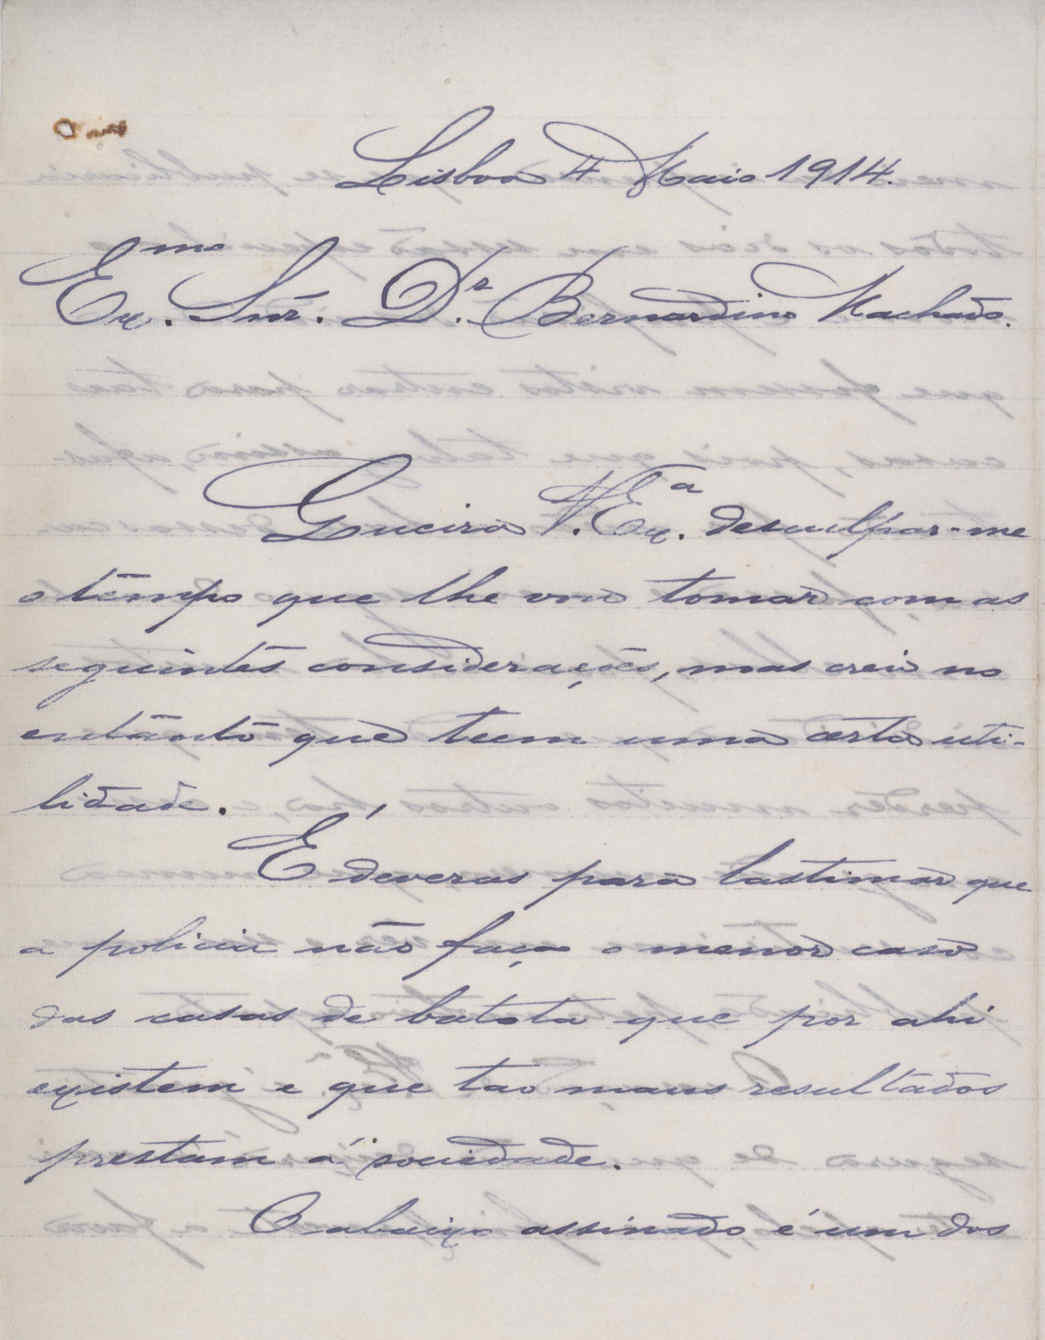 Lisboa 4 Maio 1914.
Ex.mo Snr. D.r Bernardino Machado.
Queira V. Ex.a desculpar-me
o tempo que lhe vou tomar com as
seguintes considerações, mas creio no
entanto que teem uma certa uti-
lidade.
É deveras para lastimar que
a policia não faça o menor caso
das casas de batota que por ahi
existem e que tao maus resultados
prestam á sociedade.
O abaixo assinado é um dos